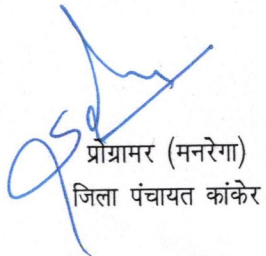 प्रोग्रामर (मनरेगा)
जिला पंचायत कांकेर